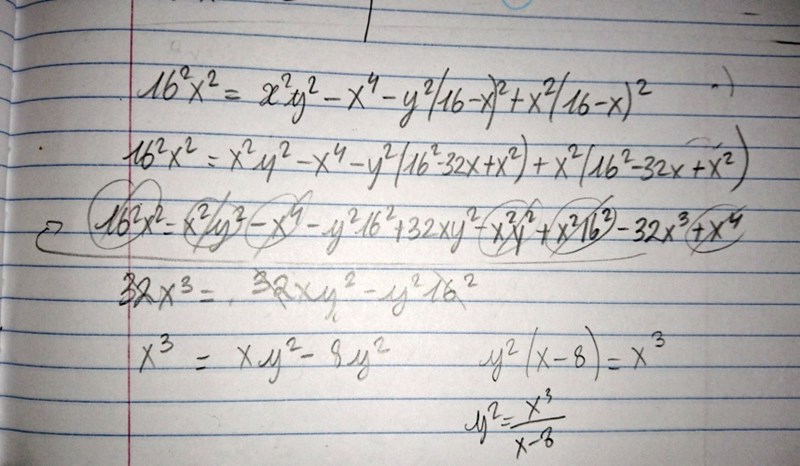 16²x² = x²y² - x⁴ - y²(16-x)² + x²(16-x)²
16²x² = x²y² - x⁴ - y²(16²-32x+x²) + x²(16²-32x+x²)
16²x² = x²y² - x⁴ - y²16² + 32xy² - x²y² + x²16² - 32x³ + x⁴
32x³ = 32xy² - y²16²
x³ = xy² - 8y² y²(x-8) = x³
y² = x³/x-8